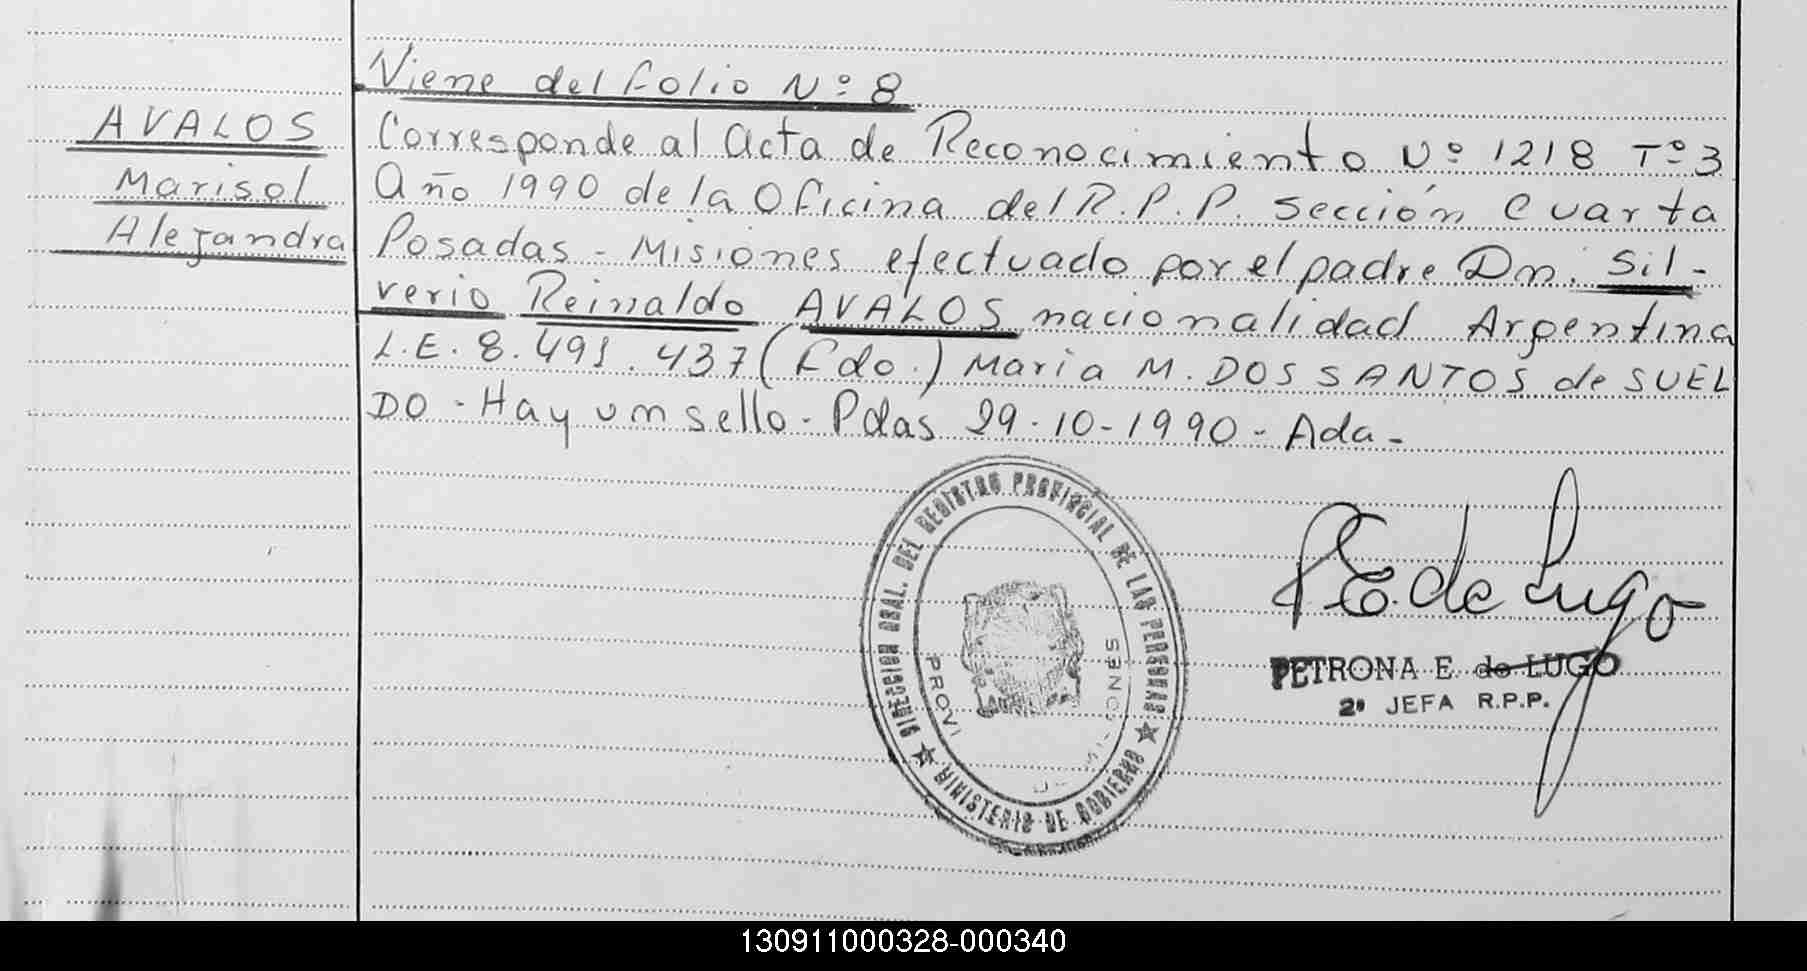 Viene del folio Nº 8
AVALOS
Marisol
Alejandra
Corresponde al acta de Reconocimiento Nº 1218 Tº 3
año 1990 de la Oficina del R.P.P. Sección Cuarta
Posadas - Misiones efectuado por el padre Dn. Sil-
verio Reinaldo AVALOS nacionalidad Argentina
L.E. 8.491.437 (Fdo.) Maria M. DOS SANTOS de SUEL
DO - Hay un sello - Pdas 29-10-1990 - Ada -
DIRECCION GRAL. DEL REGISTRO PROVINCIAL DE LAS PERSONAS
MINISTERIO DE GOBIERNO
PROVI
SENOI
P E. de Lugo
PETRONA E. de LUGO
2ª JEFA R.P.P.
130911000328-000340